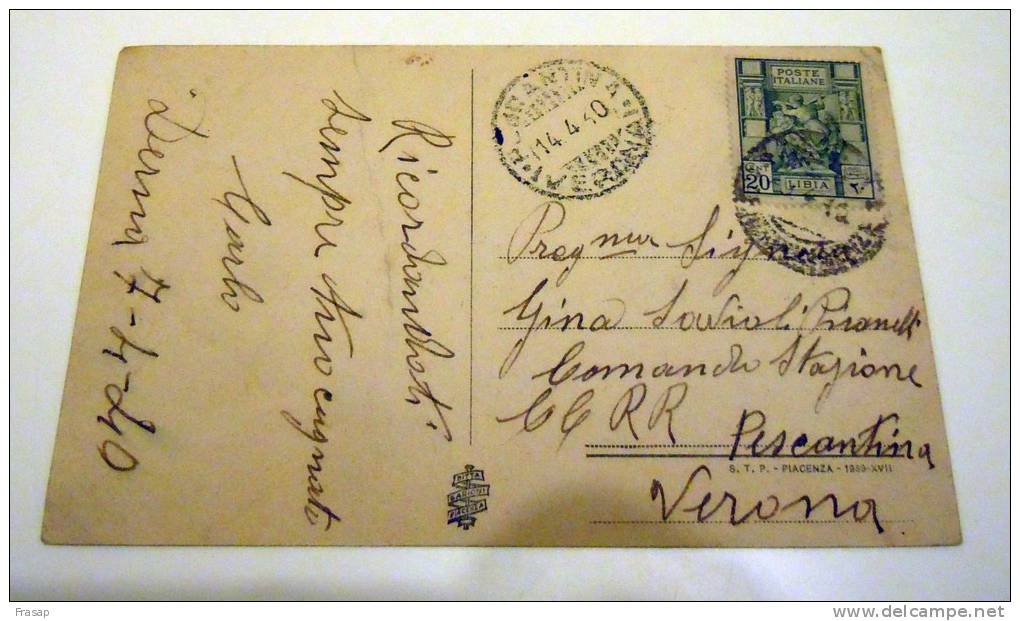 Derna 7-4-40
Ricordandoti
sempre tuo cugnato
Carlo
14.4.40
POSTE
ITALIANE
CENT
20
LIBIA
٢٠
Signora
Gina Savioli
Comando Stazione
CC RR
Pescantina
S. T. P. - PIACENZA - 1939-XVII
Verona
Frasap
www.delcampe.net